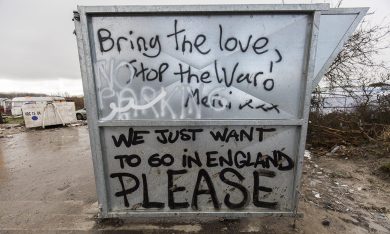 Bring the love,
Stop the War!
Merci xxx
NO
PARKING
WE JUST WANT
TO GO IN ENGLAND
PLEASE